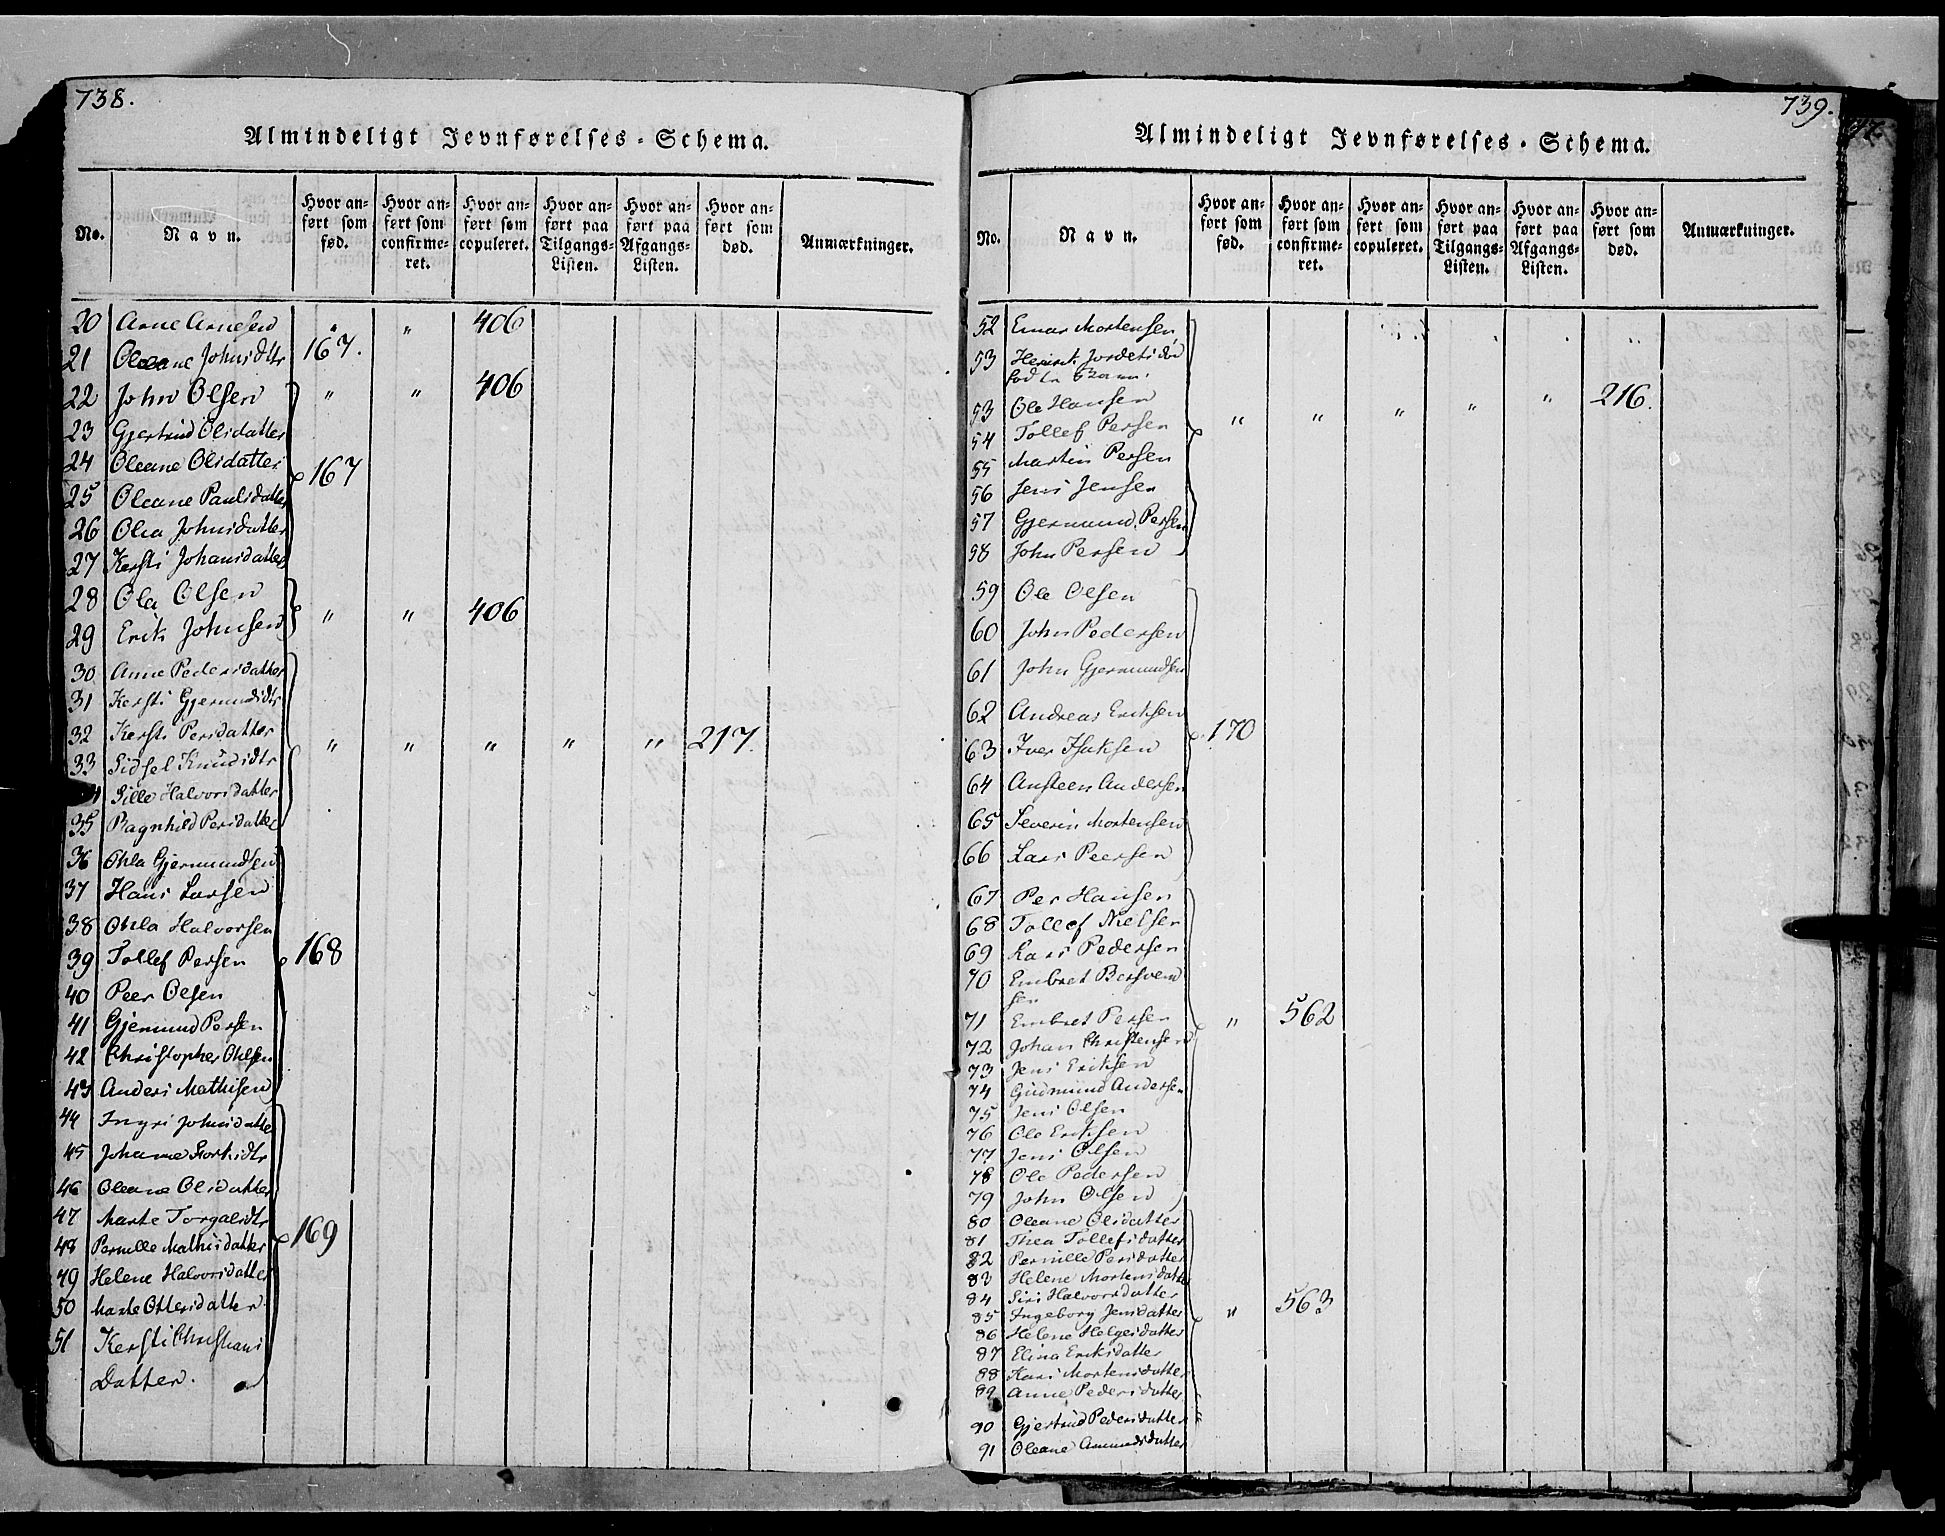 738.
Almindeligt Jevnførelses-Schema.
No.
Navn.
Hvor anført som fød.
Hvor anført som confirmeret.
Hvor anført som copuleret.
Hvor anført paa Tilgangs-Listen.
Hvor anført paa Afgangs-Listen.
Hvor anført som død.
Anmærkninger.
20 Arne Arnesen " " 406
21 Oleane Johnsdtr 167.
22 John Olsen " " 406
23 Gjertrud Olsdatter
24 Oleane Olsdatter 167
25 Oleane Paulsdatter
26 Olea Johnsdatter
27 Kersti Johansdatter
28 Ola Olsen " " 406
29 Erik Johnsen
30 Anne Pedersdatter
31 Kersti Gjermundsdtr
32 Kersti Persdatter " " " " " 217.
33 Sidsel Knudsdtr
Sille Halvorsdatter
35 Ragnhild Persdatter
36 Ohla Gjermundsen
37 Hans Larsen
38 Ohla Halvorsen
39 Tollef Persen 168
40 Peer Olsen
41 Gjermund Persen
42 Christopher Ohlsen
43 Anders Mathisen
44 Ingri Johnsdatter
45 Johanne
46 Oleane Olsdatter
47 Marte Torgalsdtr
48 Pernille Mathisdatter 169
49 Helene Halvorsdatter
50 Marte Ottersdatter
51 Kersti Christians
Datter.
739.
Almindeligt Jevnførelses-Schema.
No.
Navn.
Hvor anført som fød.
Hvor anført som confirmeret.
Hvor anført som copuleret.
Hvor anført paa Tilgangs-Listen.
Hvor anført paa Afgangs-Listen.
Hvor anført som død.
Anmærkninger.
52 Einar Mortensen
53
53 Ole Hansen " " " " " 216.
54 Tollef Persen
55 Martin Persen
56 Jens Jensen
57 Gjermund Persen
58 John Persen
59 Ole Olsen
60 John Pedersen
61 John Gjermundsen
62 Andreas Eriksen 170
63 Iver Isaksen
64 Ansteen Andersen
65 Severin Mortensen
66 Lars Peersen
67 Per Hansen
68 Tollef Nielsen
69 Lars Pedersen
70 Embret Bersvend
sen
71 Embret Persen " 562
72 Johan Christensen
73 Jens Eriksen
74 Gudmund Andersen
75 Jens Olsen
76 Ole Eriksen
77 Jens Olsen
78 Ole Pedersen
79 John Olsen
80 Oleane Olsdatter
81 Thea Tollefsdatter
82 Pernille Persdatter
83 Helene Mortensdatter
84 Siri Halvorsdatter
85 Ingeborg Jensdatter " 563
86 Helene Helgesdatter
87 Elina Eriksdatter
88 Kari Mortensdatter
89 Anne Pedersdatter
90 Gjertrud Pedersdatter
91 Oleane Amundsdatter